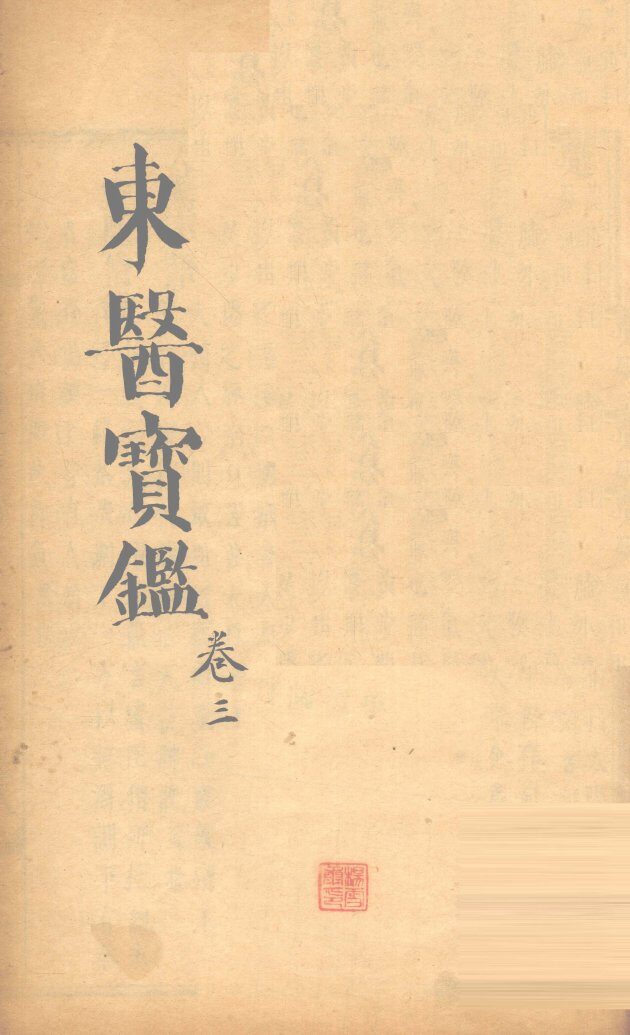 東醫寶鑑
卷三